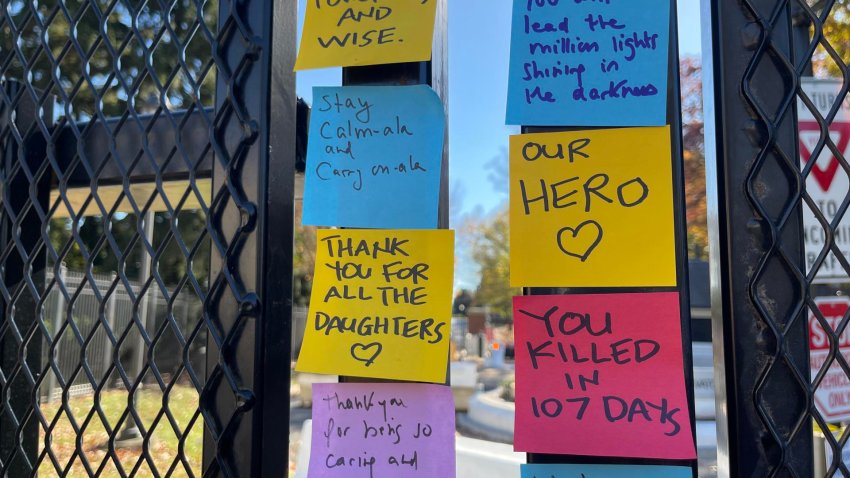 AND
WISE.
Stay
Calm-ala
and
Carry on-ala
THANK
YOU FOR
ALL THE
DAUGHTERS
Thank you
for being so
caring and
lead the
million lights
shining in
the darkness
OUR
HERO
YOU
KILLED
IN
107 DAYS
TUR
TO
STOP
ONLY